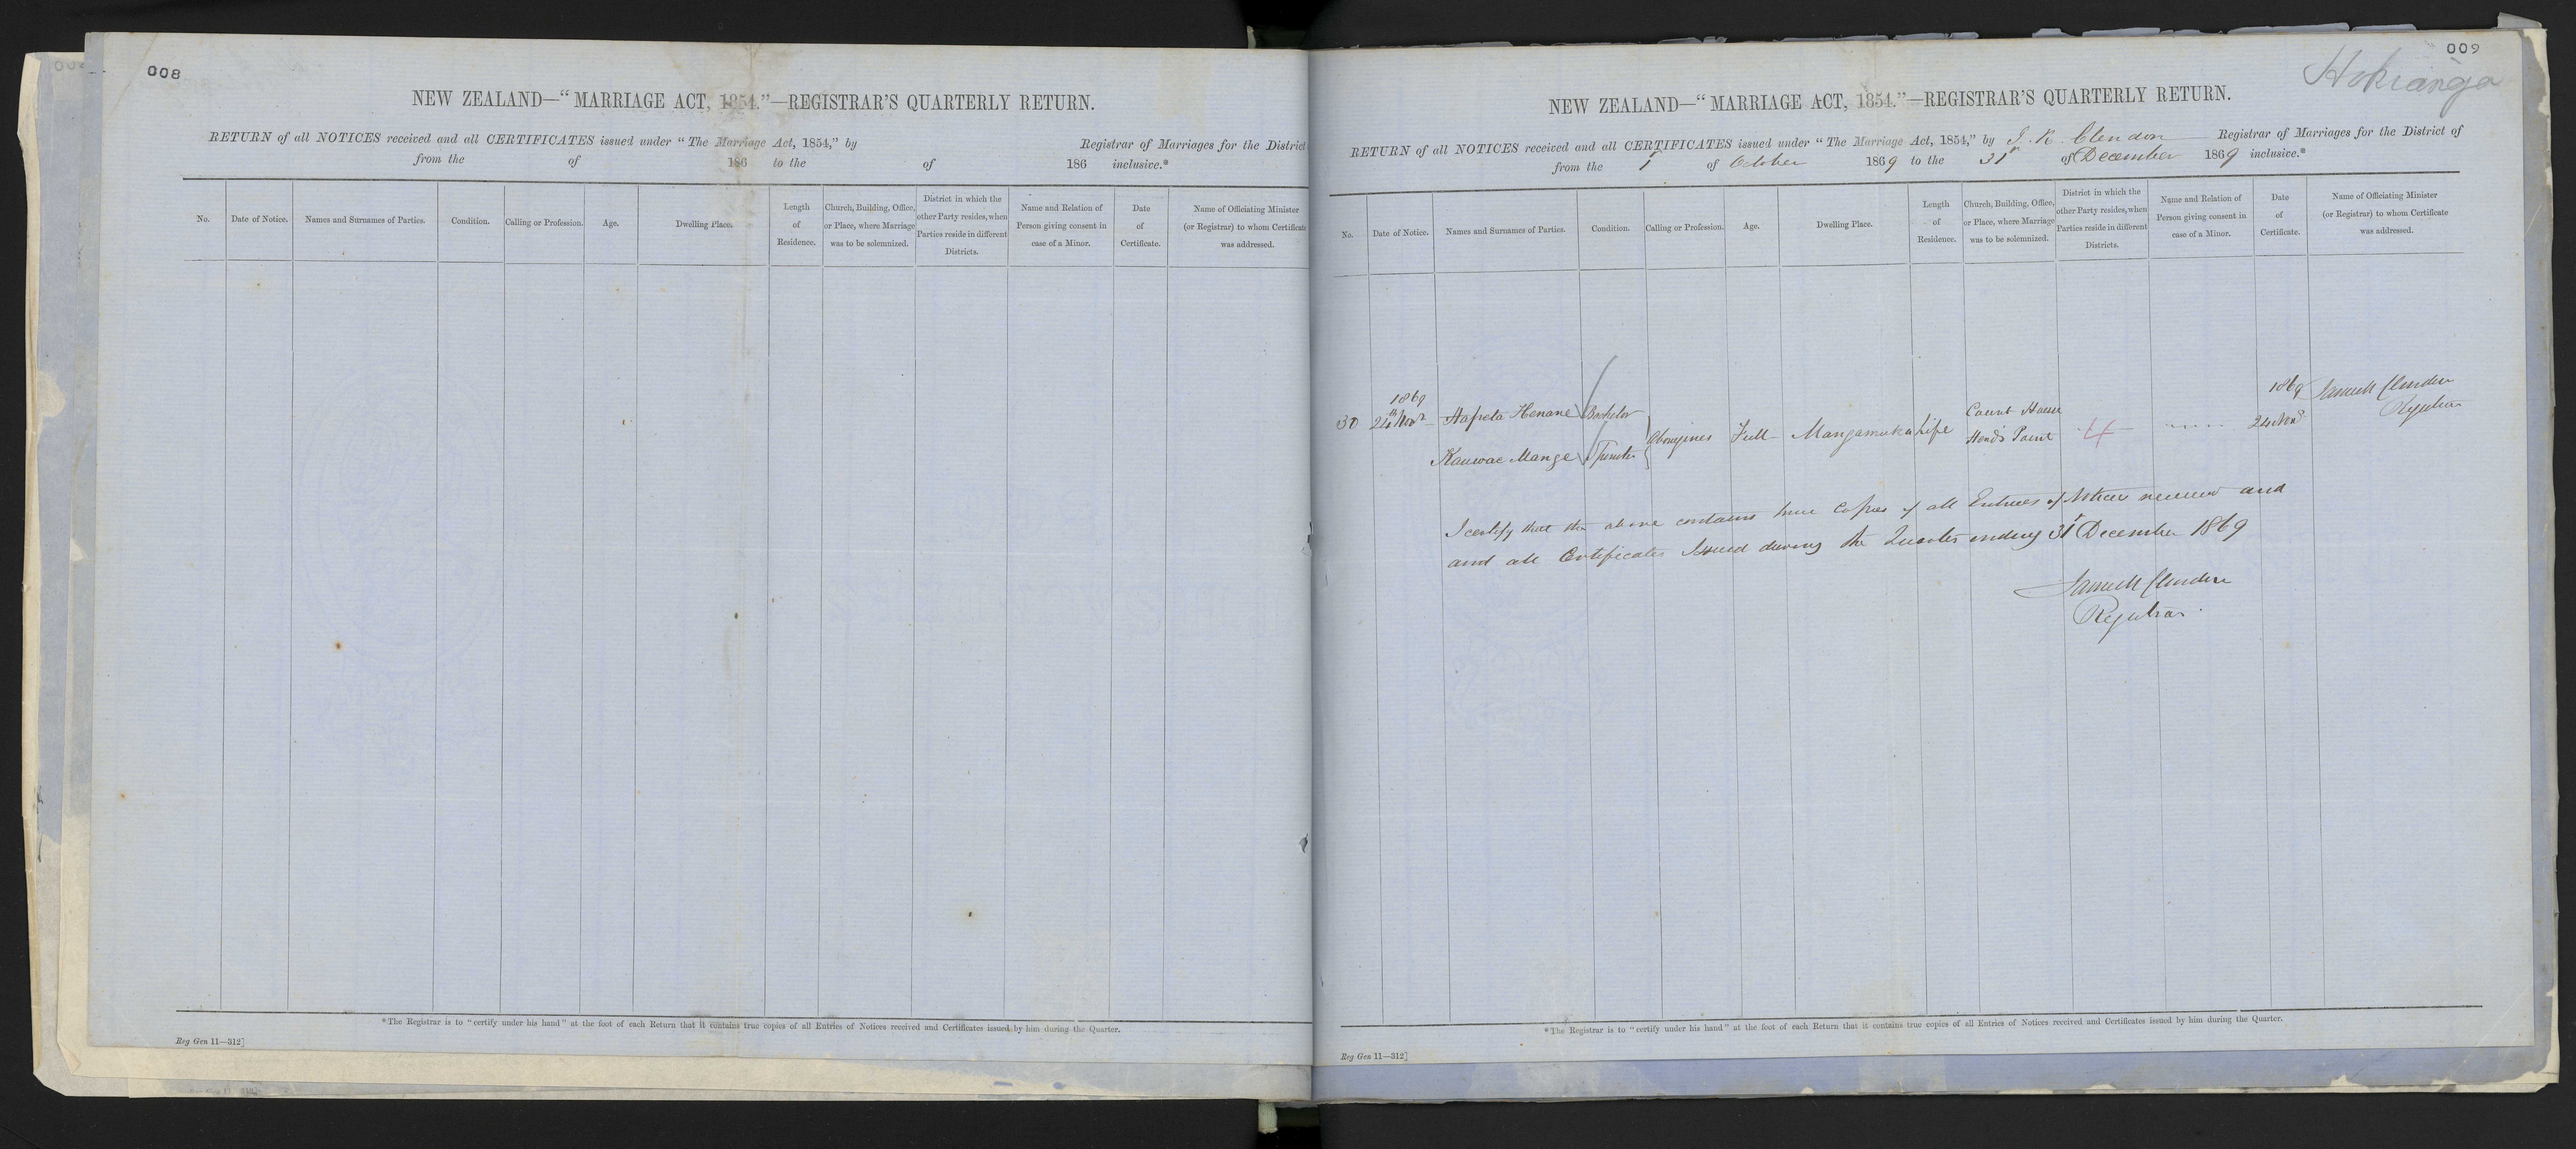 008
NEW ZEALAND—“MARRIAGE ACT, 1854.”—REGISTRAR'S QUARTERLY RETURN.
RETURN of all NOTICES received and all CERTIFICATES issued under “The Marriage Act, 1854,” by Registrar of Marriages for the District
from the of 186 to the of 186 inclusive.*
No.
Date of Notice.
Names and Surnames of Parties.
Condition.
Calling or Profession.
Age.
Dwelling Place.
Length
of
Residence.
Church, Building, Office,
or Place, where Marriage
was to be solemnized.
District in which the
other Party resides, when
Parties reside in different
Districts.
Name and Relation of
Person giving consent in
case of a Minor.
Date
of
Certificate.
Name of Officiating Minister
(or Registrar) to whom Certificate
was addressed.
*The Registrar is to “certify under his hand” at the foot of each Return that it contains true copies of all Entries of Notices received and Certificates issued by him during the Quarter.
Reg Gen 11—312]
009
Hokianga
NEW ZEALAND—“MARRIAGE ACT, 1854.”—REGISTRAR'S QUARTERLY RETURN.
RETURN of all NOTICES received and all CERTIFICATES issued under “The Marriage Act, 1854,” by J. R. Clendon Registrar of Marriages for the District of
from the 1st of October 1869 to the 31st of December 1869 inclusive.*
No.
Date of Notice.
Names and Surnames of Parties.
Condition.
Calling or Profession.
Age.
Dwelling Place.
Length
of
Residence.
Church, Building, Office,
or Place, where Marriage
was to be solemnized.
District in which the
other Party resides, when
Parties reside in different
Districts.
Name and Relation of
Person giving consent in
case of a Minor.
Date
of
Certificate.
Name of Officiating Minister
(or Registrar) to whom Certificate
was addressed.
1869
30 24th Novr Hapeta Henane Bachelor
Kauwae Mange Spinster
Aborigines Full Mangamuka Life
Court House
Herd's Point
4
1869
24 Novr
Clendon
Registrar
I certify that the above contains true Copies of all Entries of Notices received and
and all Certificates Issued during the Quarter ending 31st December 1869
Clendon
Registrar
*The Registrar is to “certify under his hand” at the foot of each Return that it contains true copies of all Entries of Notices received and Certificates issued by him during the Quarter.
Reg Gen 11—312]